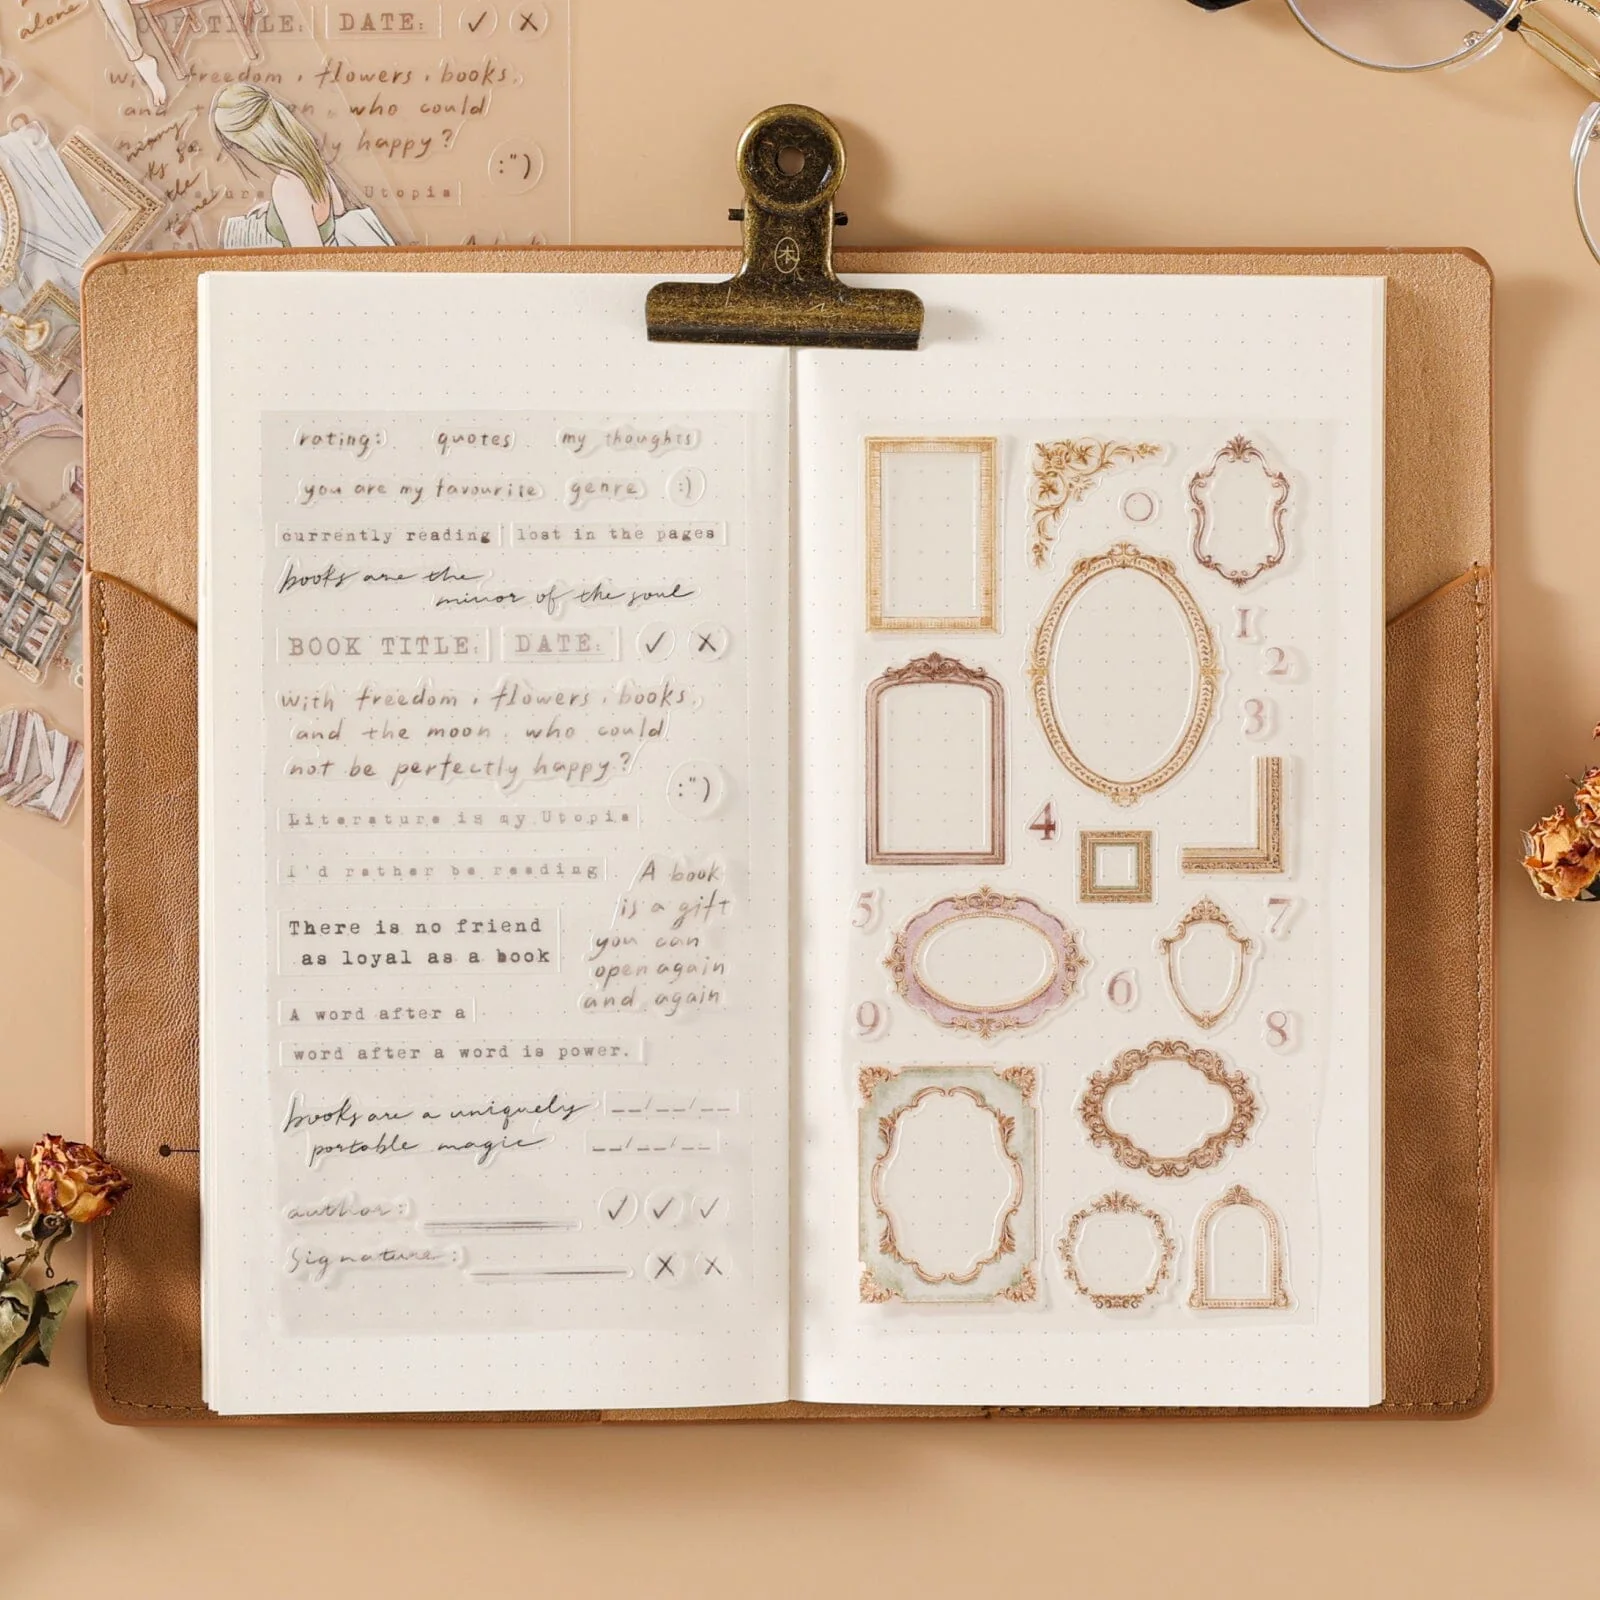 alone
TITLE:
DATE:
freedom, flowers, books,
and
who could
happy?
:")
Utopia
rating:
quotes
my thoughts
you are my favourite
genre
:)
currently reading
lost in the pages
books are the
mirror of the soul
BOOK TITLE:
DATE:
✓
X
with freedom, flowers, books,
and the moon, who could
not be perfectly happy?
:")
Literature is my Utopia
I'd rather be reading
A book
is a gift
you can
open again
and again
There is no friend
as loyal as a book
A word after a
word after a word is power.
books are a uniquely
portable magic
__/__/__
__/__/__
author:
✓ ✓ ✓
Signature:
X X
1
2
3
4
5
7
6
9
8
本